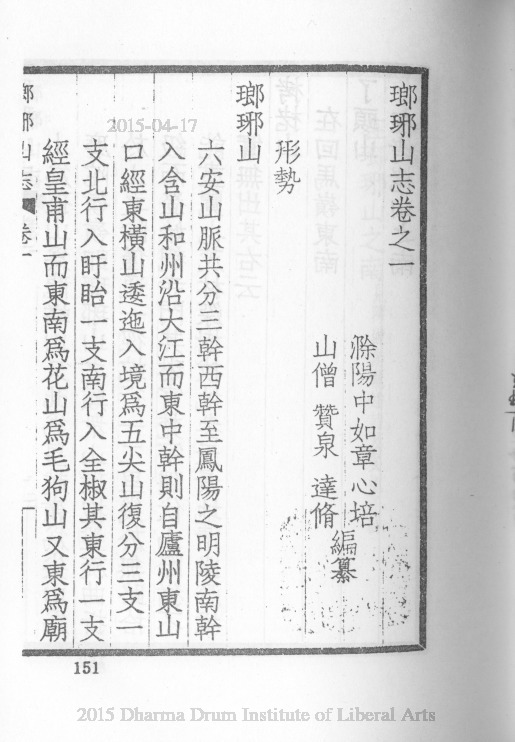 瑯琊山志卷之一
滁陽中如章心培
山僧 贊泉 達脩
編纂
形勢
瑯琊山
六安山脈共分三幹西幹至鳳陽之明陵南幹
入含山和州沿大江而東中幹則自廬州東山
口經東橫山逶迤入境爲五尖山復分三支一
支北行入盱眙一支南行入全椒其東行一支
經皇甫山而東南爲花山爲毛狗山又東爲廟
瑯琊山志
卷一
151
2015-04-17
2015 Dharma Drum Institute of Liberal Arts